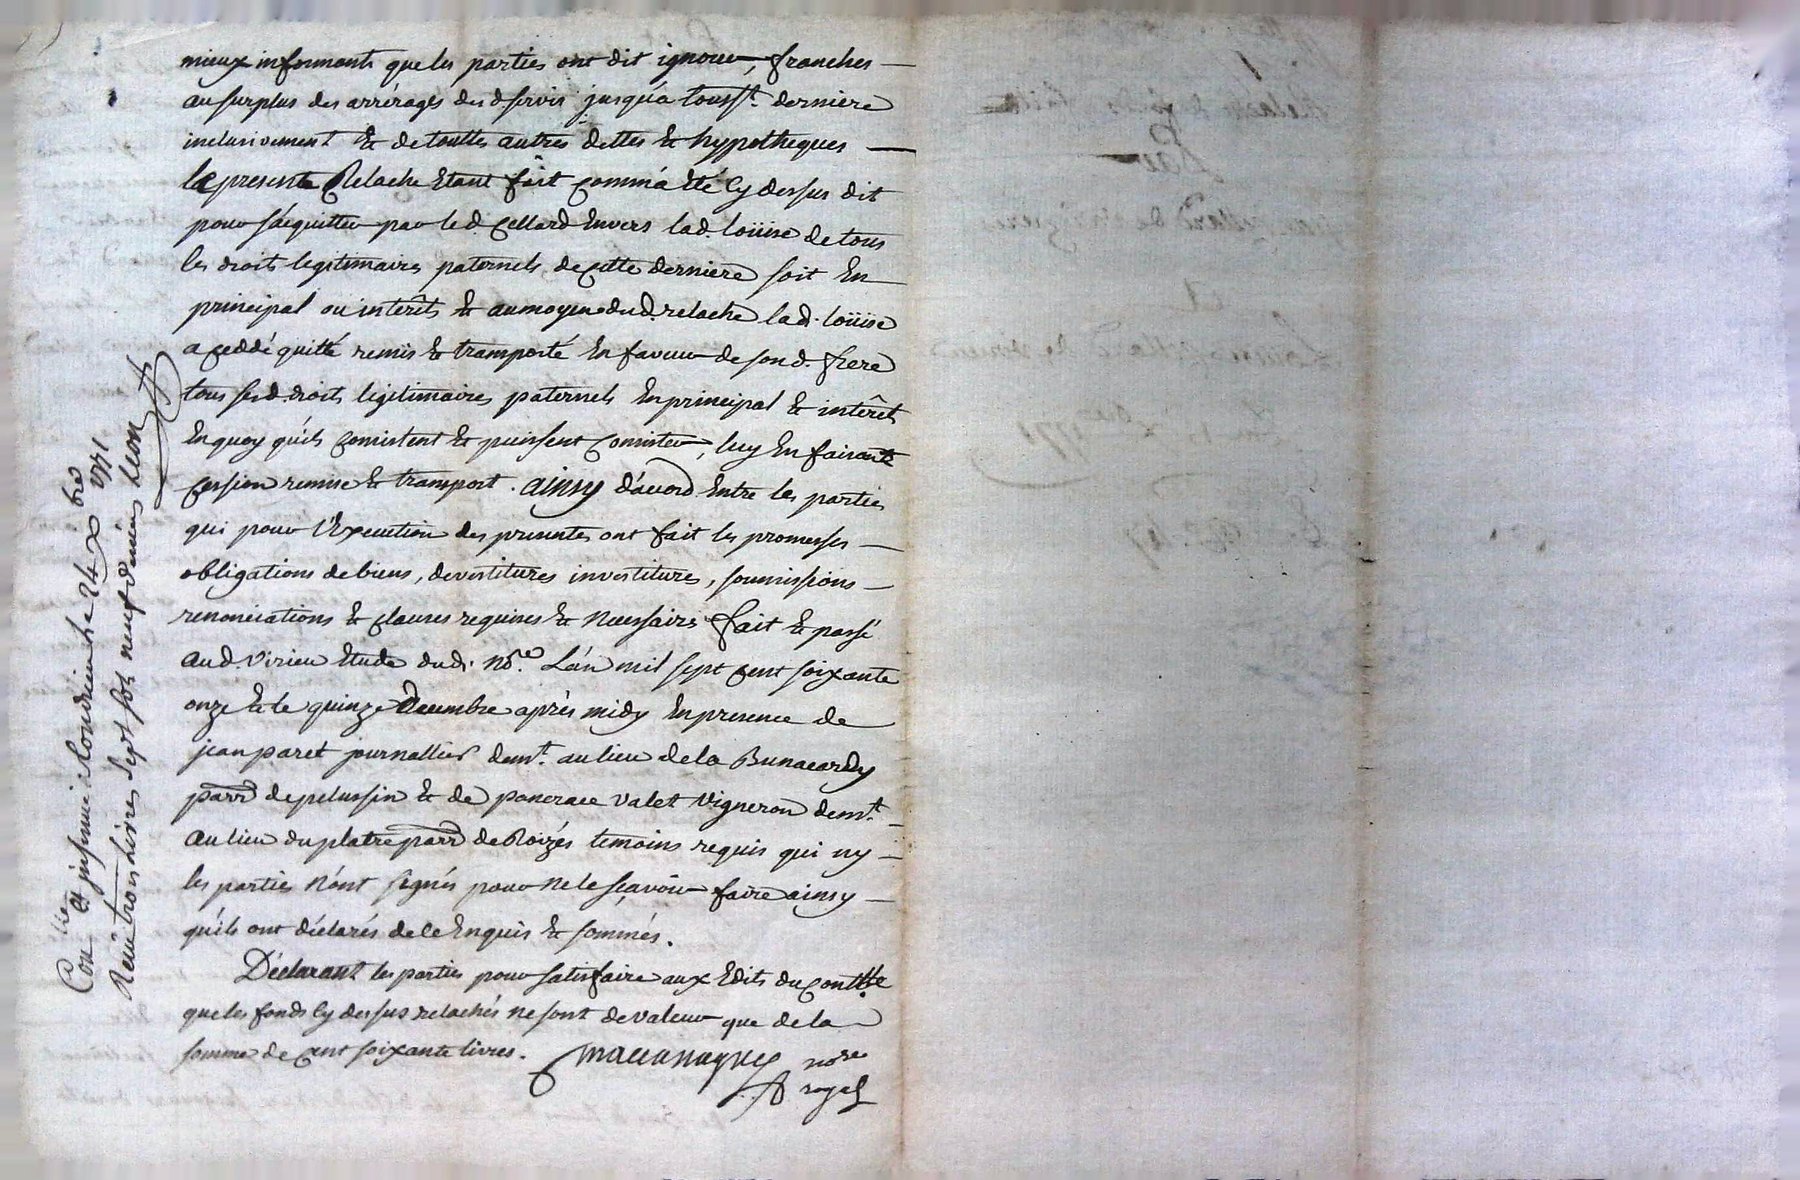 mieux informants que les parties ont dit ignorer, franches
au surplus des arrérages des d. servis jusqu'a touss.t derniere
inclusivement & de touttes autres dettes & hypotheques
la presente Relache Etant fait comm'a Eté Cy dessus dit
pour s'acquitter par le d. Cellard Envers lad. Loüise de tous
les droits legitimaires paternels de cette derniere soit En
principal ou interêts & au moyen dud. relache lad. Loüise
a ceddé quitté remis & transporté En faveur de son d. frere
tous ses d. droits legitimaires paternels En principal & interêts
En quoy qu'ils Consistent & puissent Consister, luy En faisante
Cession remise & transport. ainsy d'accord Entre les parties
qui pour l'Execution des presentes ont fait les promesses
obligations de biens, devestitures investitures, soumissions
renonciations & clauses requises & Necessaires fait & passé
aud Virieu Etude dud. No.re L'an mil sept cent soixante
onze & le quinze Decembre après midy En presence de
jean paret journallier dem.t au lieu de la
parr de pelussin & de pancrace valet Vigneron dem.t
au lieu du platre parr de Roizés temoins requis qui ny
les parties N'ont signés pour ne le sçavoir faire ainsy
qu'ils ont déclarés de ce Enquis & sommés.
Déclarant les parties pour satisfaire aux Edits du Contlle
que les fonds Cy dessus relachés ne sont de valeur que de la
somme de Cent soixante livres. no.re
royal
Con.lle & insinué à Condrieu le 24 X bre 1771
Reçu trois livres sept sols neuf deniers Leon